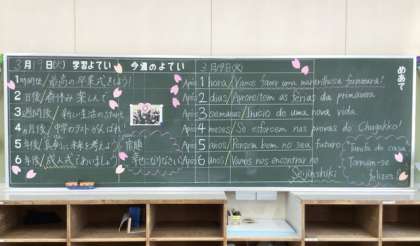 3月19日(火) 学習よてい 今週のよてい
1時間後/最高の卒業式をしよう!
2日後/春休み楽しんで
3週間後/新しい生活のスタート
4ヵ月後/中学のテストがんばれ!
5年後/
6年後/成人式で会いましょう
常磐
幸せになりなさい
3月19日(火)
Após 1 hora/Vamos fazer uma maravilhosa formatura!
Após 2 dias/Aproveitem as férias da primavera
Após 3 semanas/Início de uma nova vida
Após 4 meses/Se esforcem nas provas do Chugakko!
Após 5 anos/Pensem bem no seu futuro
Após 6 anos/Vamos nos encontrar no Seijinshiki
Turma da casa
Tornam-se felizes
めあて